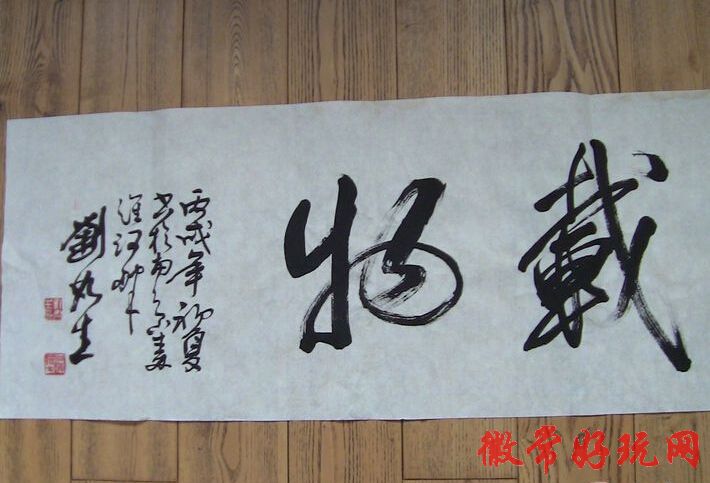 載物
丙戌年初夏
書於南京素
淮河畔
劉
生
徽常好玩网